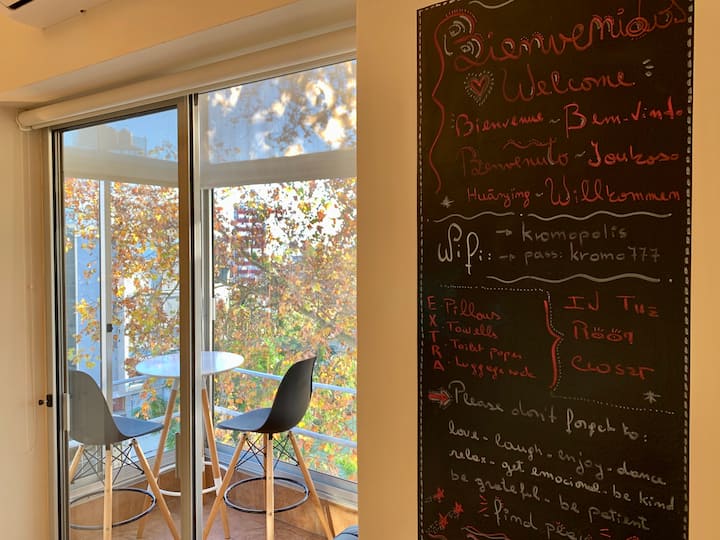 Bienvenidos
Welcome
Bienvenue ~ Bem-vinto
Benvenuto ~ Joukoso
Huānjing ~ Willkommen
Wifi: → kromopolis
→ pass: kromo777
EXTRA
Pillows
Towells
Toilet paper
Luggage rack
IN THE
ROOM
CLOSET
Please don't forget to:
love - laugh - enjoy - dance
relax - get emocional - be kind
be grateful - be patient
find